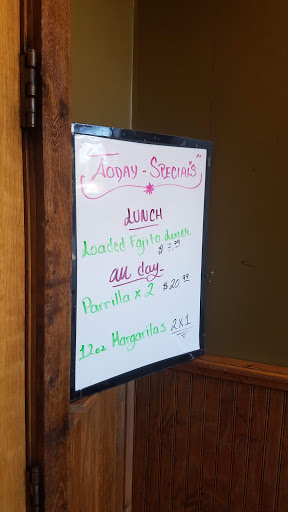 "Today - Specials"
LUNCH
Loaded Fajita Lunch
$7.99
all day
Parrilla x 2 $20.99
12oz Margaritas 2x1